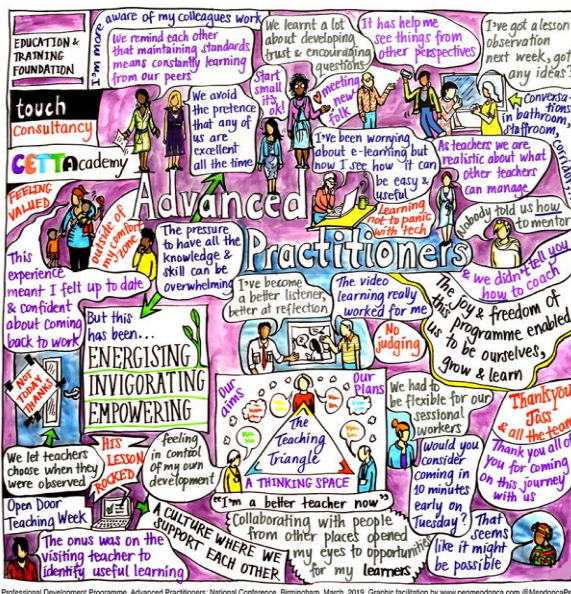 EDUCATION &
TRAINING
FOUNDATION
touch
consultancy
CETTAcademy
I'm more aware of my colleagues work
We remind each other
that maintaining standards
means constantly learning
from our peers
We learnt a lot
about developing
trust & encouraging
questions
It has help me
see things from
other perspectives
I've got a lesson
observation
next week, got
any ideas?
Conversa-
tions
in bathroom,
staffroom,
corridor,
We avoid
the pretence
that any of
us are
excellent
all the time
Start
small
it's
ok!
meeting
new
folk
I've been worrying
about e-learning but
now I see how it can
be easy &
useful
As teachers we are
realistic about what
other teachers
can manage
Learning
not to panic
with tech
Nobody told us how
to mentor
& we didn't tell you
how to coach
Advanced
Practitioners
FEELING
VALUED
outside of
my comfort
zone
This
experience
meant I felt up to date
& confident
about coming
back to work
The pressure
to have all the
knowledge &
skill can be
overwhelming
But this
has been...
ENERGISING
INVIGORATING
EMPOWERING
I've become
a better listener,
better at reflection
The video
learning really
worked for me
No
judging
The joy & freedom of
this programme enabled
us to be ourselves,
grow & learn
NOT
TODAY
THANKS
We let teachers
choose when they
were observed
HIS
LESSON
ROCKED
feeling
in control
of my own
development
Our
aims
Our
Plans
The
Teaching
Triangle
A THINKING SPACE
"I'm a better teacher now"
We had to
be flexible for our
sessional
workers
Would you
consider
coming in
10 minutes
early on
Tuesday?
That
seems
like it might
be possible
Thankyou
Joss
& all the team
Thank you all of
you for coming
on this journey
with us
Open Door
Teaching Week
The onus was on the
visiting teacher to
identify useful learning
A CULTURE WHERE WE
SUPPORT EACH OTHER
Collaborating with people
from other places opened
my eyes to opportunities
for my learners
Professional Development Programme, Advanced Practitioners: National Conference, Birmingham, March, 2019. Graphic facilitation by www.penmendonca.com @MendoncaPe